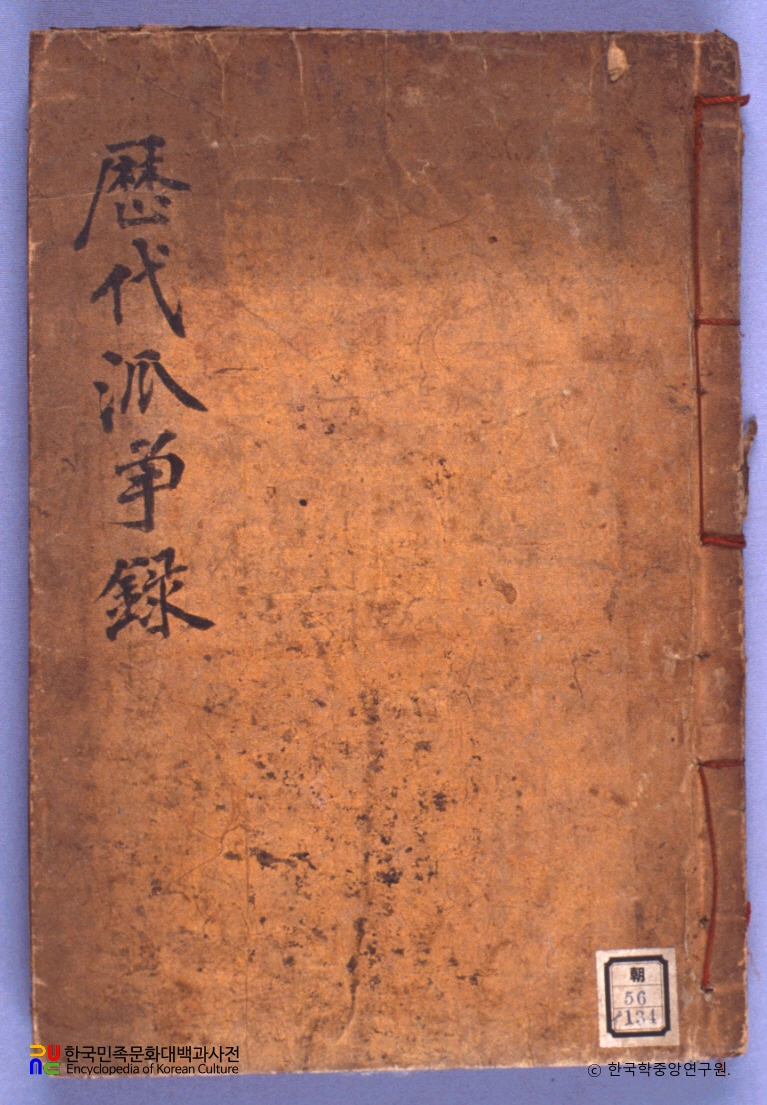 歷代派争録
朝
56
134
한국민족문화대백과사전
Encyclopedia of Korean Culture
ⓒ 한국학중앙연구원.